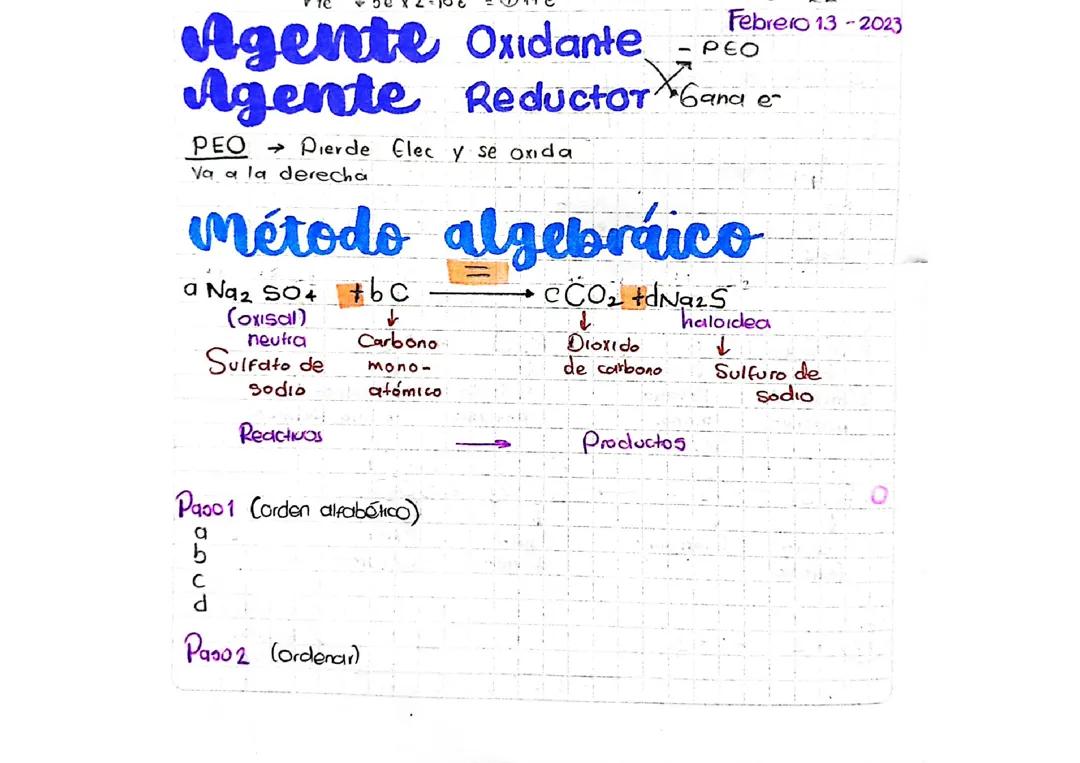 Febrero 13 - 2023
Agente Oxidante - PEO
Agente Reductor Gana e-
PEO → Pierde Elec y se oxida
Va a la derecha
Método algebráico
=
a Na2 SO4 + b C → c CO2 + d Na2S
(oxisal) ↓ ↓ haloidea
neutra Carbono Dioxido ↓
Sulfato de mono- de carbono Sulfuro de
sodio atómico sodio
Reactivos → Productos
Paso 1 (orden alfabético)
a
b
c
d
Paso 2 (ordenar)